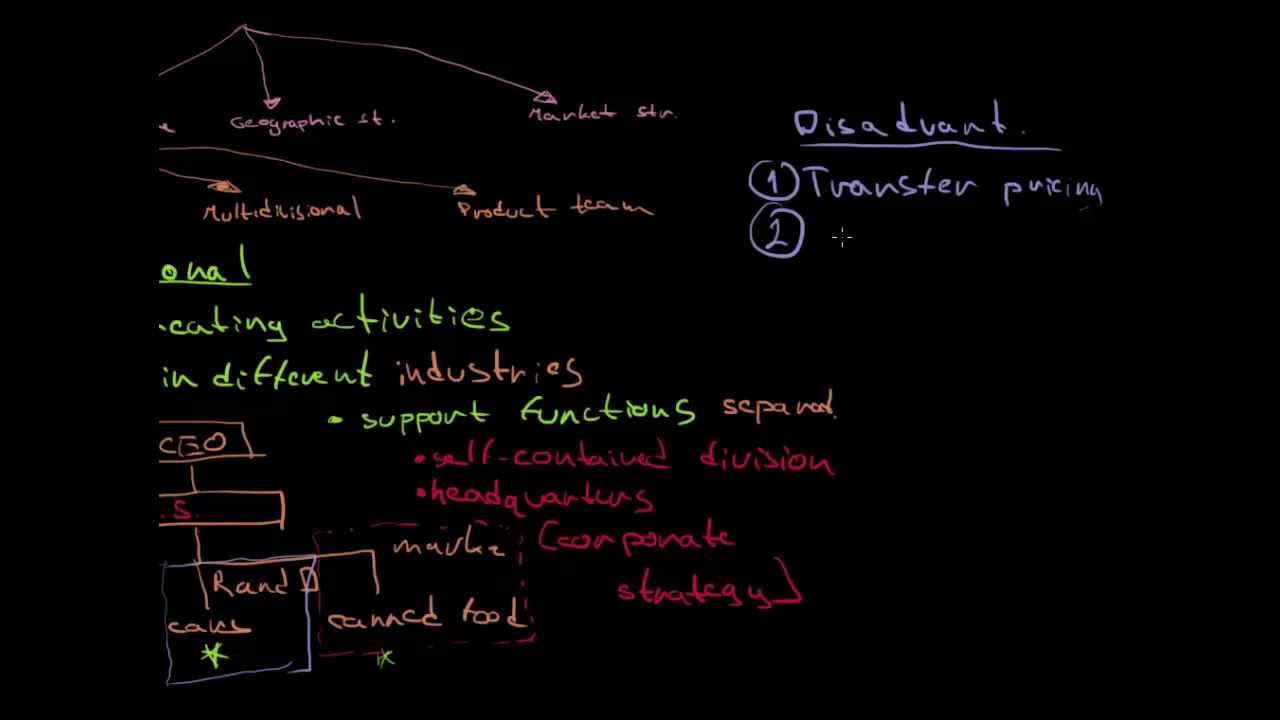 Geographic st.
Market str.
Disadvant.
1 Transfer pricing
Multidivisional
Product team
2
onal
cating activities
in different industries
• support functions separat.
• self-contained division
• headquarters
(corporate
strategy)
CEO
.S.
marke
Rand D
cars
canned food